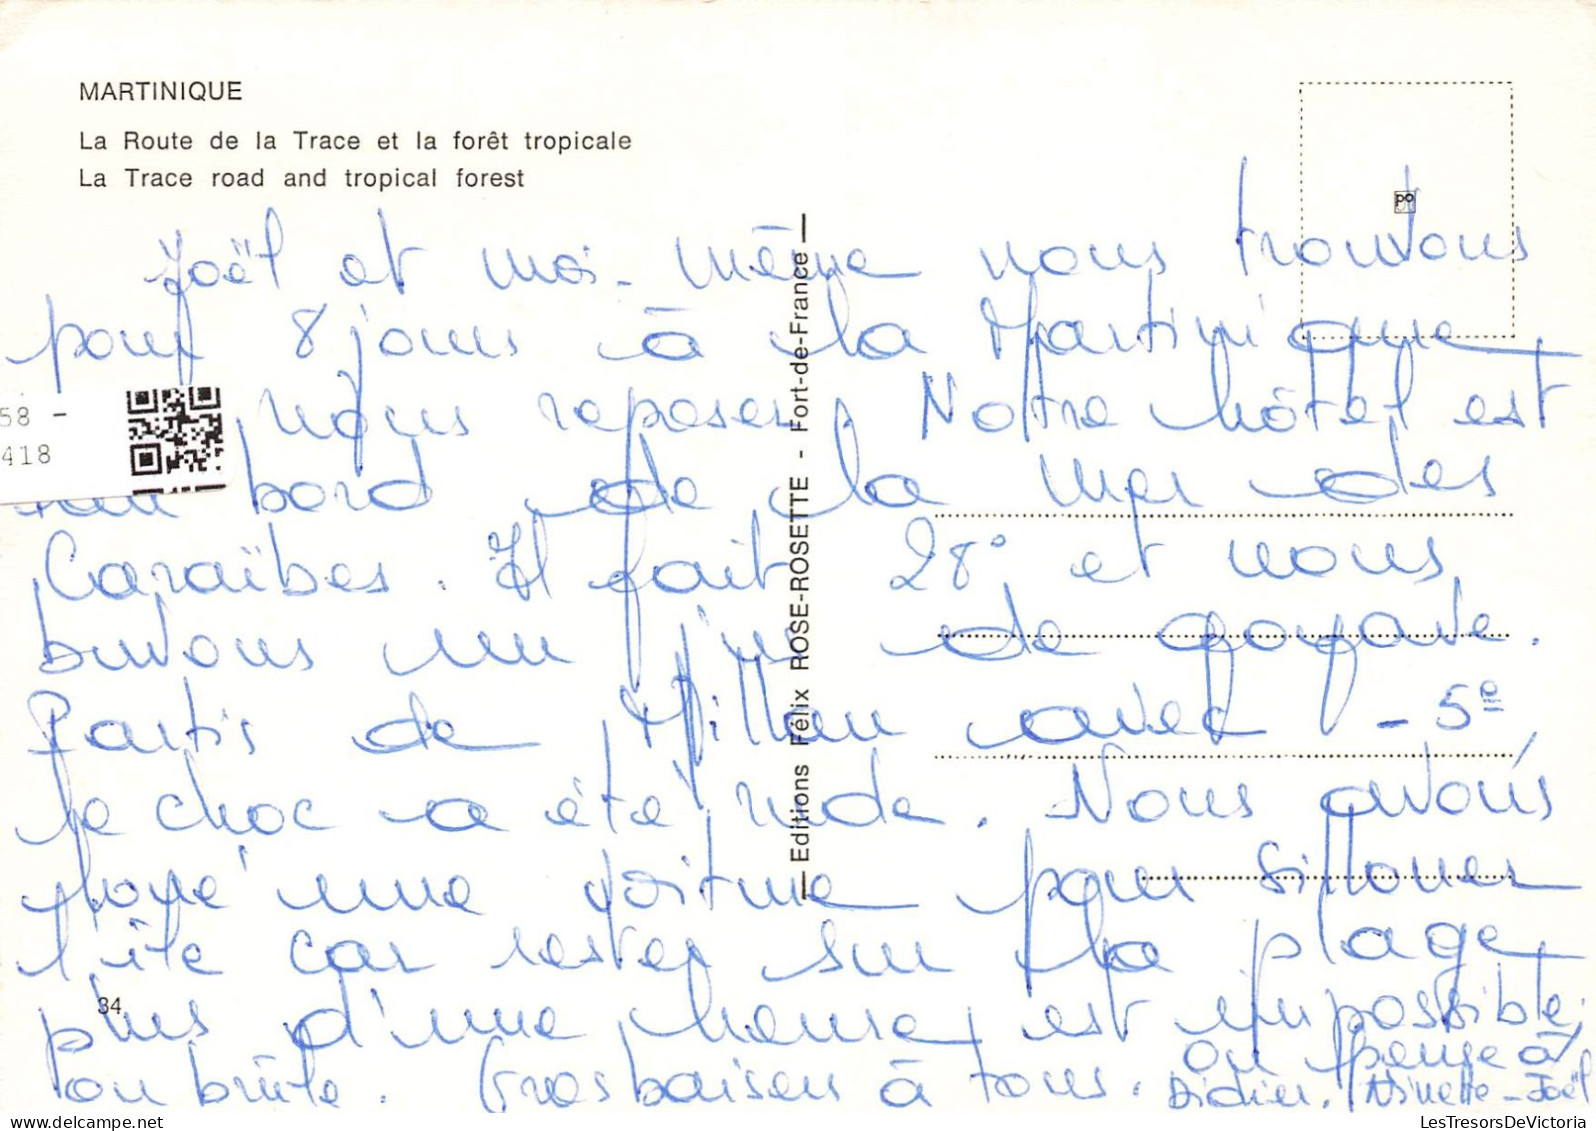 MARTINIQUE
La Route de la Trace et la forêt tropicale
La Trace road and tropical forest
po
Joël et moi-même nous trouvons
pour 8 jours à la Martinique
58 -
nous reposer. Notre hôtel est
418
au bord de la mer des
Caraïbes. Il fait 28° et nous
buvons un jus de goyave.
Partis de Millau avec - 5°
le choc a été rude. Nous avons
loué une voiture pour sillonner
l'île car rester sur la plage
34.
plus d'une heure est impossible,
on brûle. Gros baisers à tous. on pense à
Didier. Ninette - Joël
Editions Félix ROSE-ROSETTE - Fort-de-France
LesTresorsDeVictoria
delcampe.net